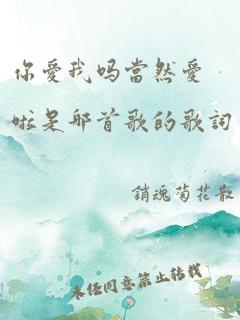 你愛我吗當然愛
啦是那首歌的歌詞
銷魂菊花散
未经同意禁止转载